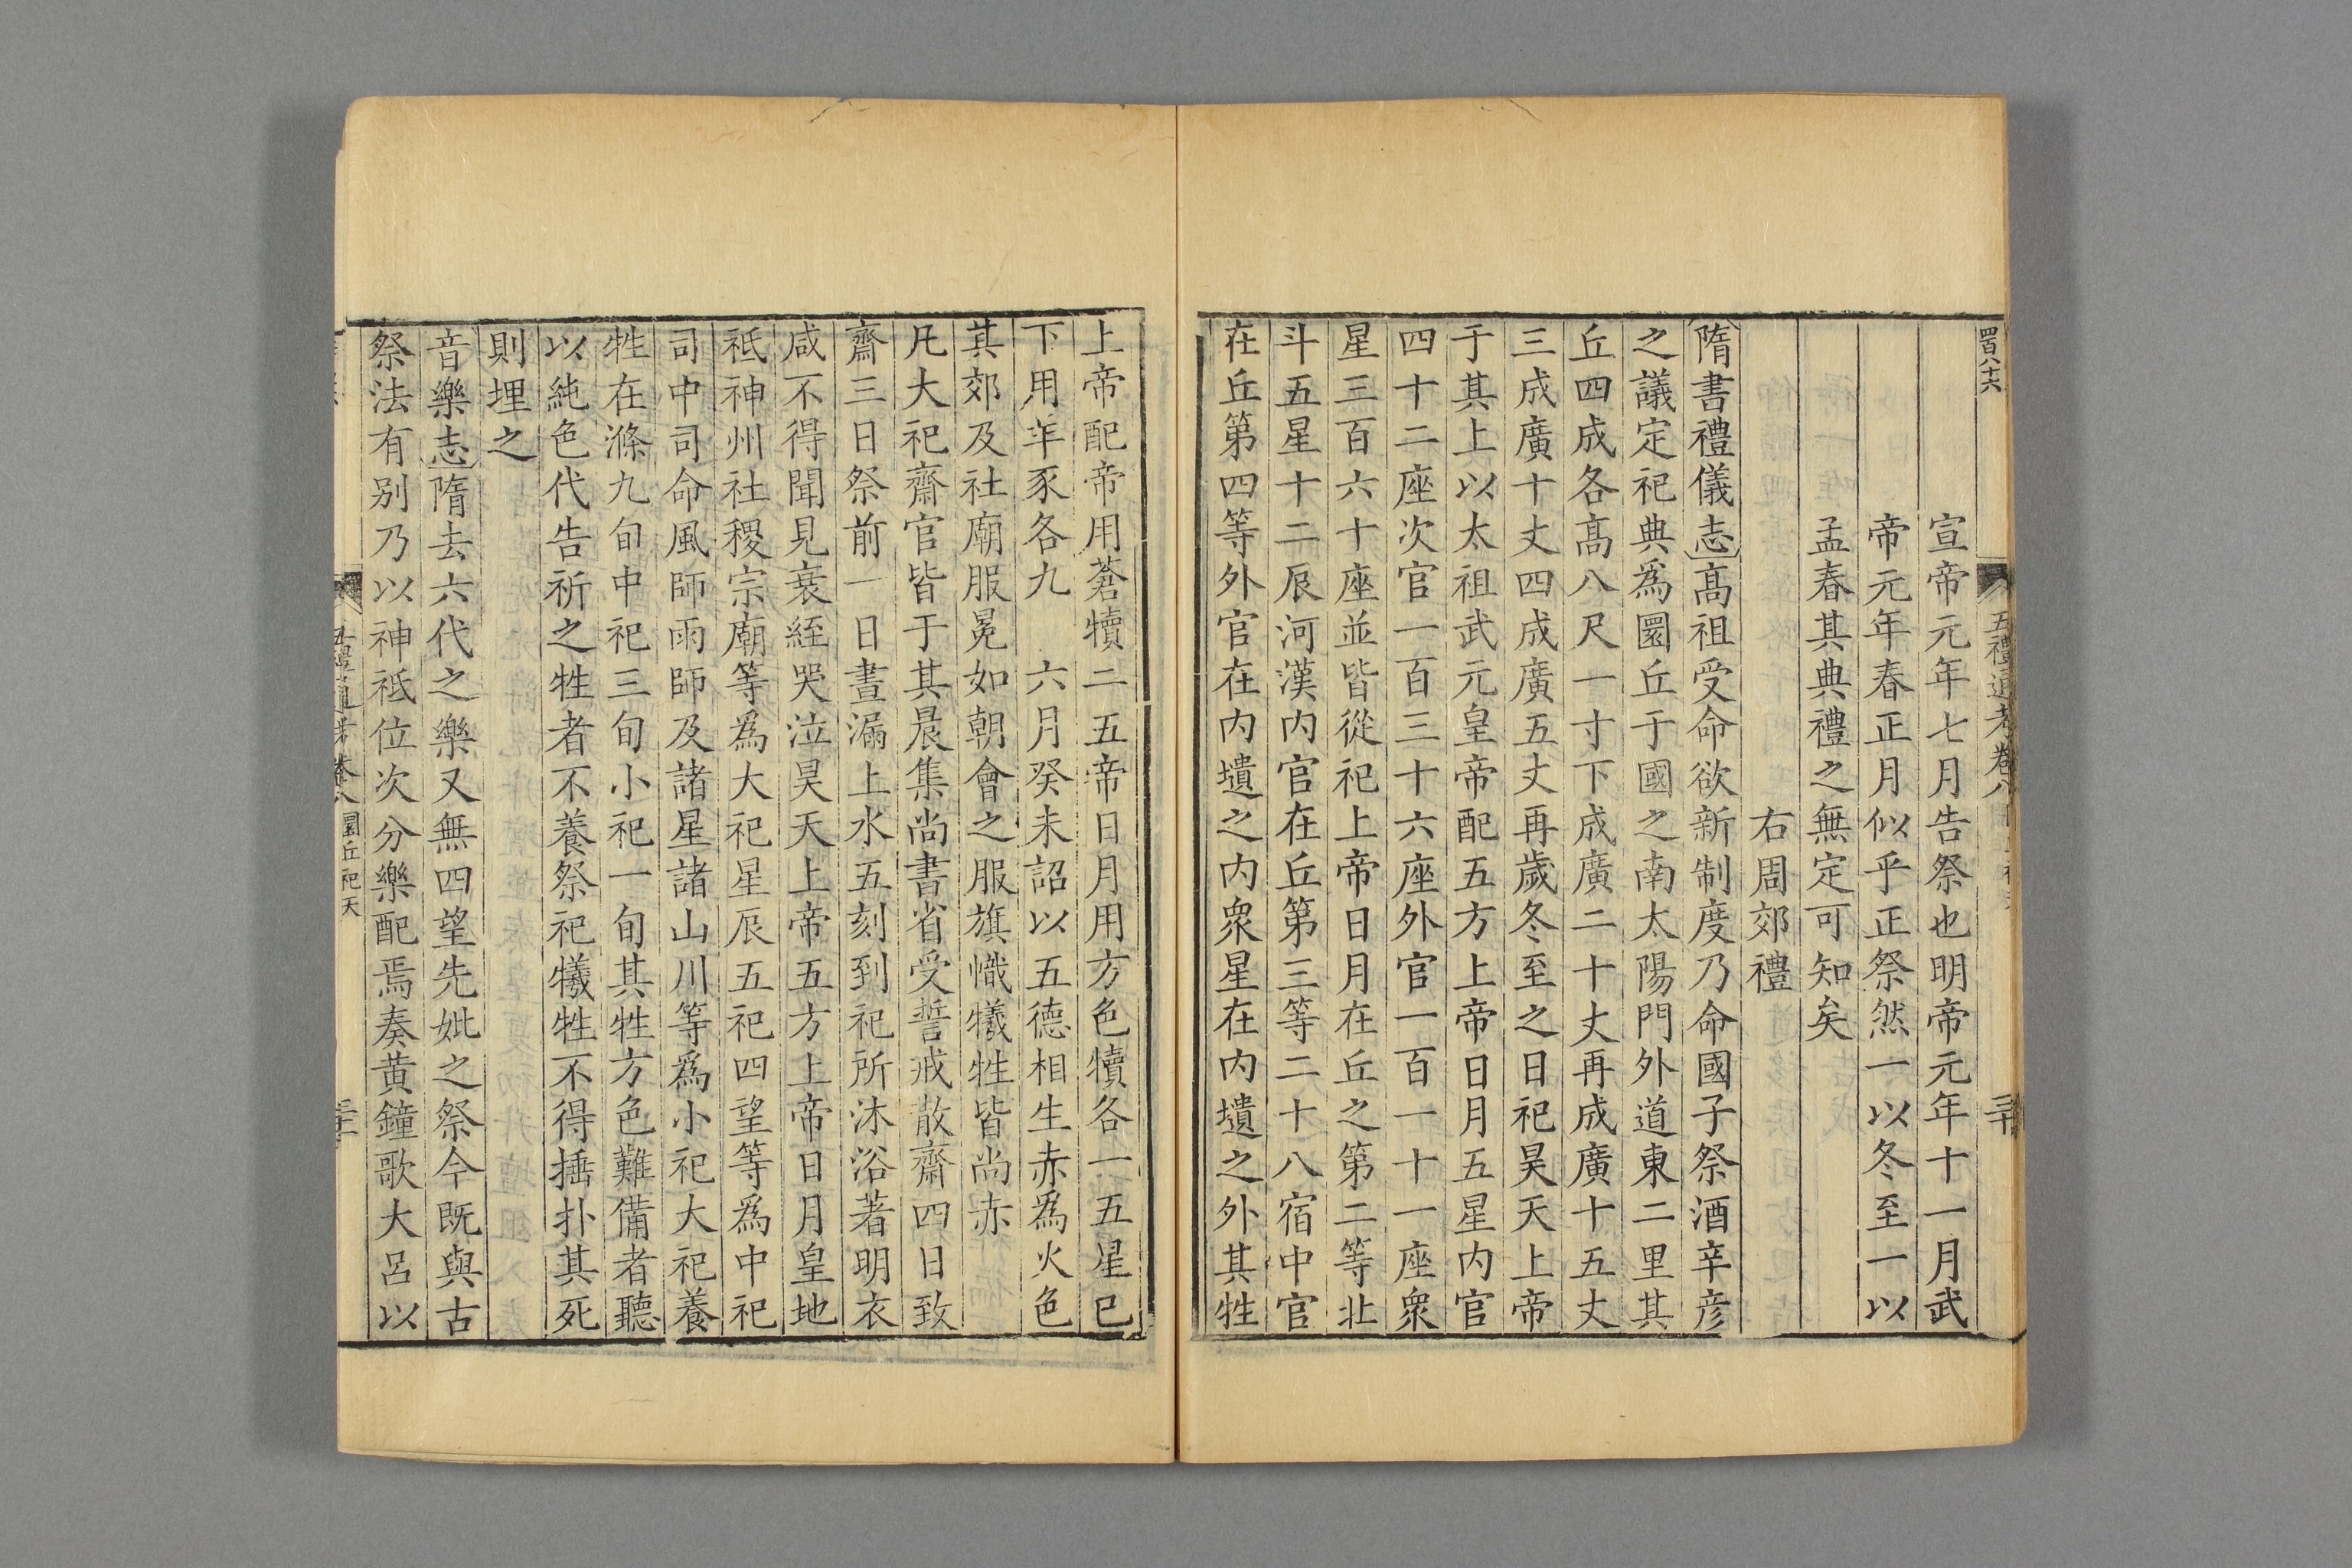 四百八十六
五禮通考卷八
三十
宣帝元年七月告祭也明帝元年十一月武
帝元年春正月似乎正祭然一以冬至一以
孟春其典禮之無定可知矣
右周郊禮
隋書禮儀志高祖受命欲新制度乃命國子祭酒辛彦
之議定祀典爲圜丘于國之南太陽門外道東二里其
丘四成各高八尺一寸下成廣二十丈再成廣十五丈
三成廣十丈四成廣五丈再歲冬至之日祀昊天上帝
于其上以太祖武元皇帝配五方上帝日月五星内官
四十二座次官一百三十六座外官一百一十一座衆
星三百六十座並皆從祀上帝日月在丘之第二等北
斗五星十二辰河漢内官在丘第三等二十八宿中官
在丘第四等外官在内壝之内衆星在内壝之外其牲
上帝配帝用蒼犢二五帝日月用方色犢各一五星已
下用羊豕各九 六月癸未詔以五德相生赤爲火色
其郊及社廟服冕如朝會之服旗幟犧牲皆尚赤
凡大祀齋官皆于其晨集尚書省受誓戒散齋四日致
齋三日祭前一日晝漏上水五刻到祀所沐浴著明衣
咸不得聞見衰絰哭泣昊天上帝五方上帝日月皇地
祗神州社稷宗廟等爲大祀星辰五祀四望等爲中祀
司中司命風師雨師及諸星諸山川等爲小祀大祀養
牲在滌九旬中祀三旬小祀一旬其牲方色難備者聽
以純色代告祈之牲者不養祭祀犧牲不得捶扑其死
則埋之
音樂志隋去六代之樂又無四望先妣之祭今既與古
祭法有别乃以神祗位次分樂配焉奏黄鐘歌大呂以
五禮通考卷八圜丘祀天